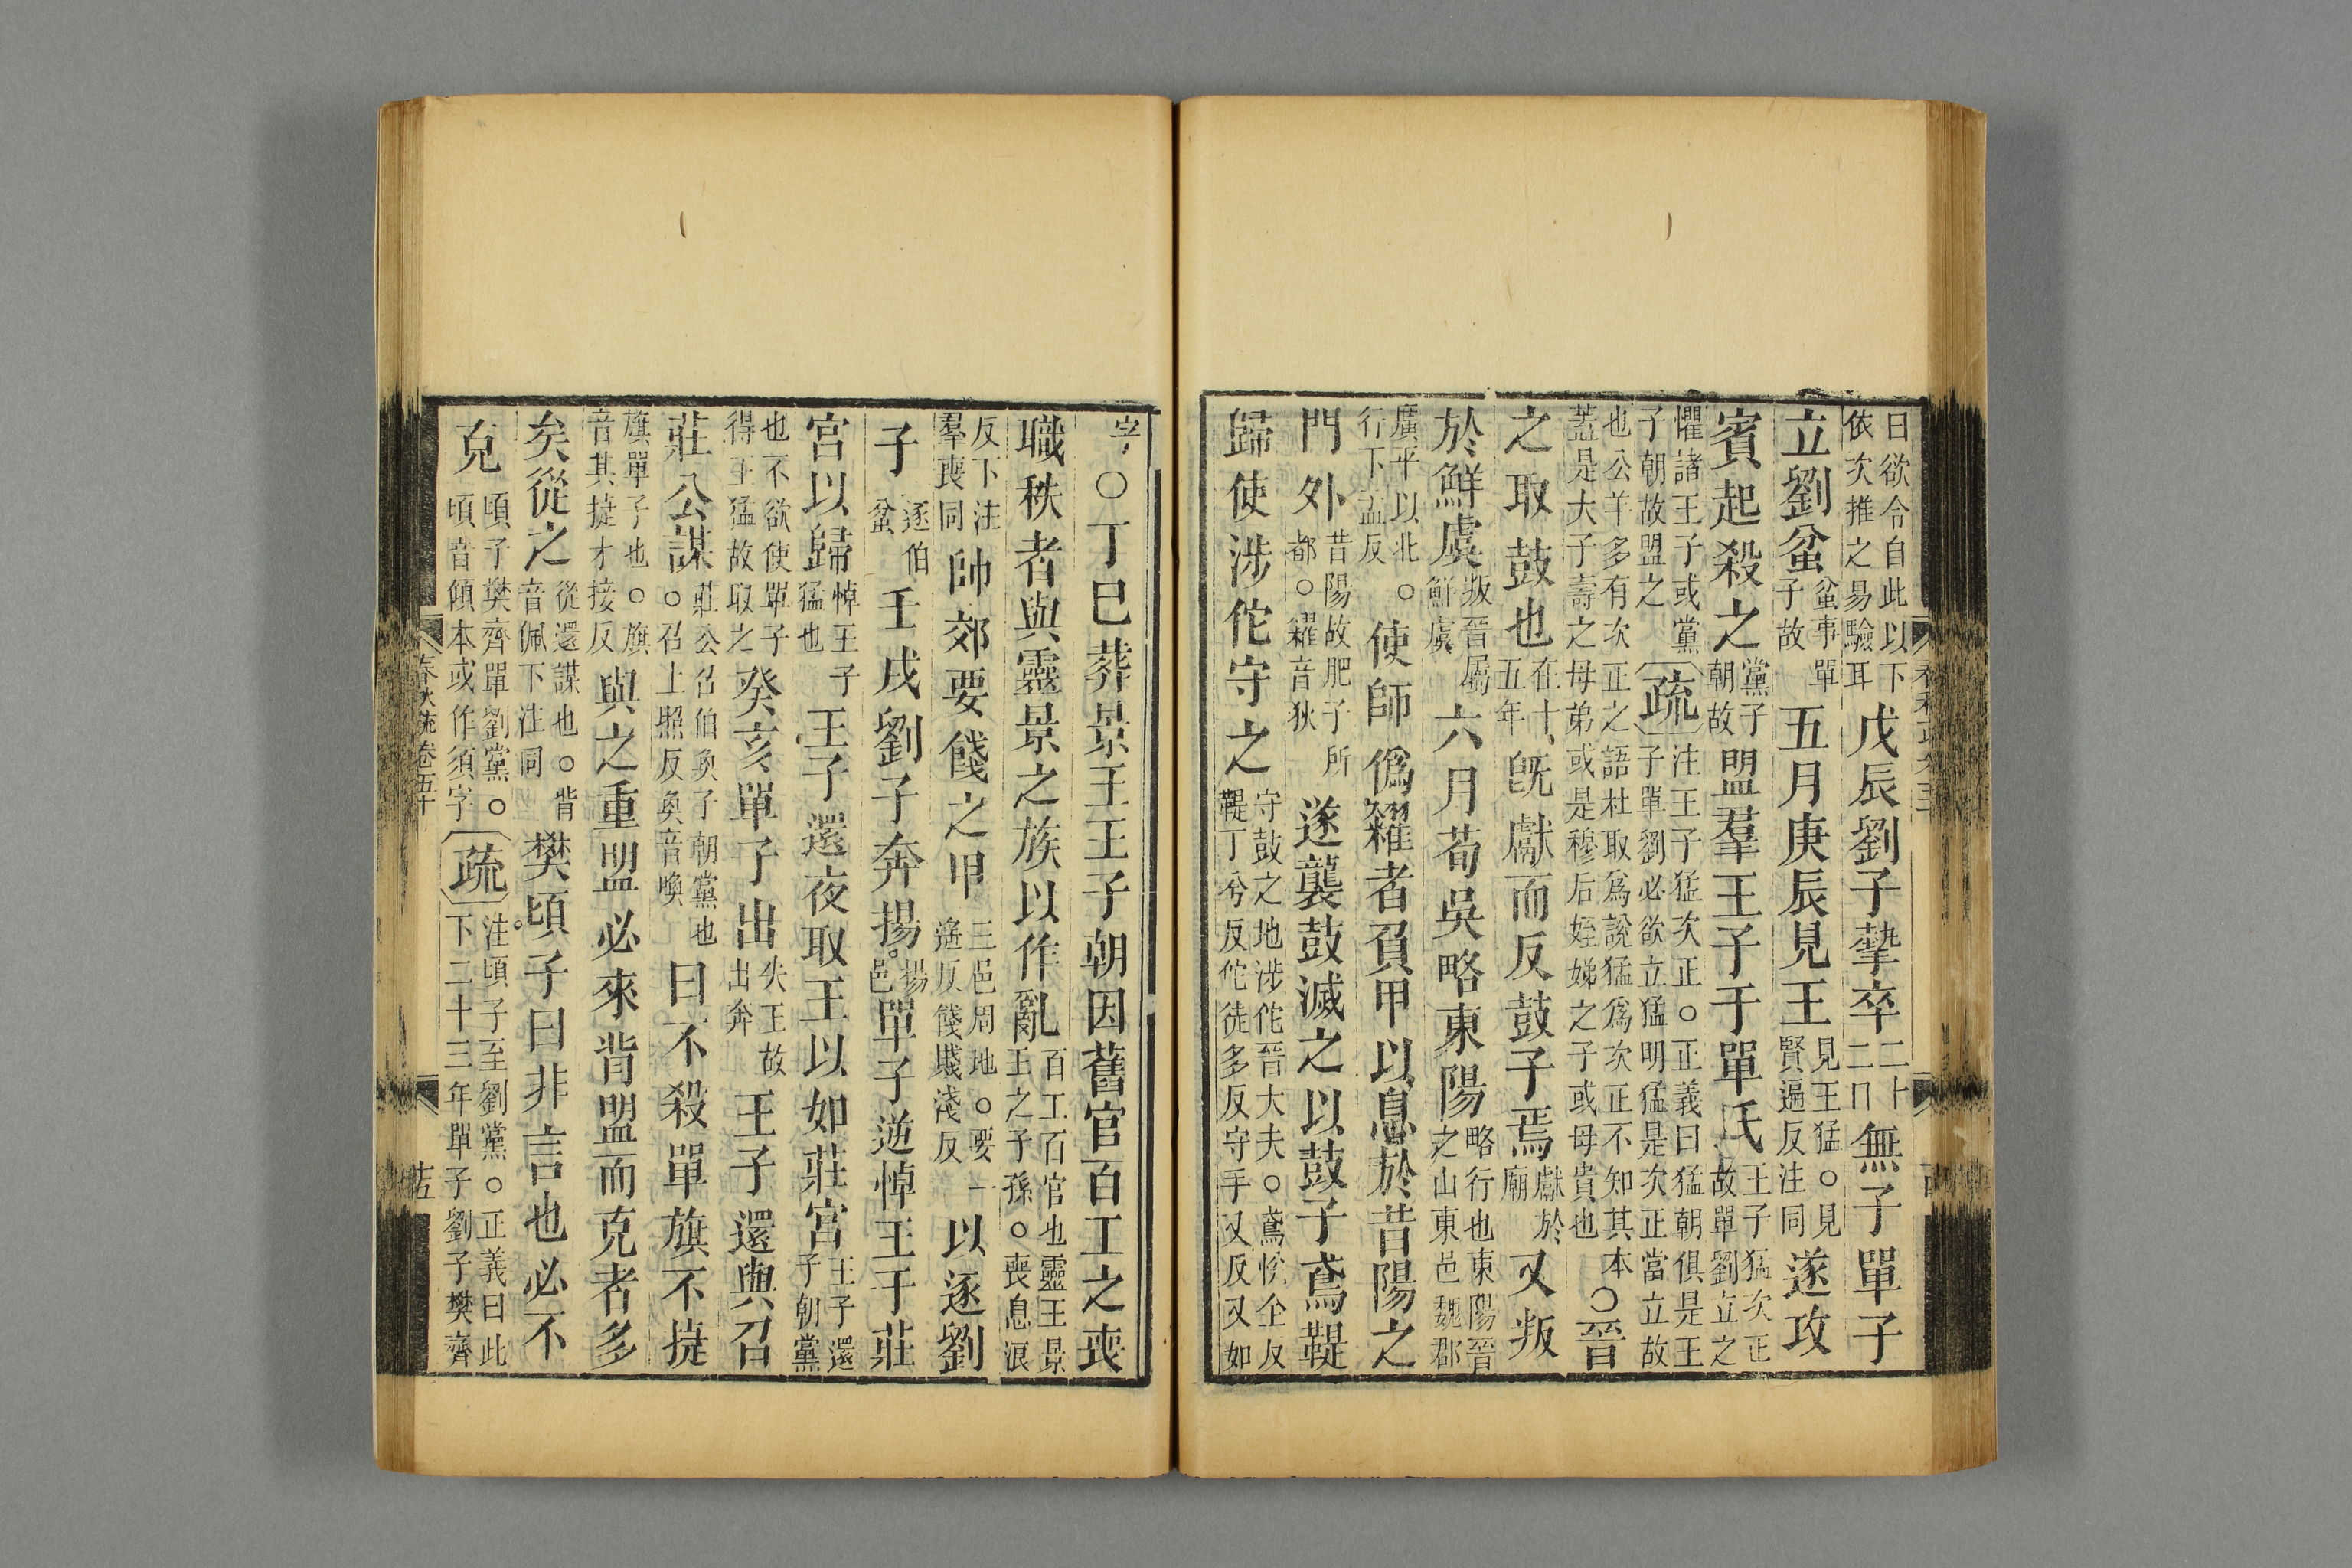 日欲令自此以下依次推之易驗耳戊辰劉子摯卒二十二日無子單子
立劉蚠蚠事單子故五月庚辰見王見王猛○見賢遍反注同遂攻
賓起殺之黨子朝故盟羣王子于單氏王子猛次正故單劉立之
懼諸王子或黨子朝故盟之疏注王子猛次正○正義曰猛朝俱是王子單劉必欲立猛明猛是次正當立故
也公羊多有次正之語杜取爲說猛爲次正不知其本蓋是大子壽之母弟或是穆后姪娣之子或母貴也○晉
之取鼓也在十五年旣獻而反鼓子焉獻於廟又叛
於鮮虞叛晉屬鮮虞六月荀吳略東陽略行也東陽晉之山東邑魏郡
廣平以北○行下孟反使師僞糴者負甲以息於昔陽之
門外昔陽故肥子所都○糴音狄遂襲鼓滅之以鼓子鳶鞮
歸使涉佗守之守鼓之地涉佗晉大夫○鳶悅全反鞮丁兮反佗徒多反守手又反又如
字○丁巳葬景王王子朝因舊官百工之喪
職秩者與靈景之族以作亂百工百官也靈王景王之子孫○喪息浪
反下注羣喪同帥郊要餞之甲三邑周地○要一遙反餞賤淺反以逐劉
子逐伯蚠壬戌劉子奔揚揚邑單子逆悼王于莊
宮以歸悼王子猛也王子還夜取王以如莊宮王子還子朝黨
也不欲使單子得王猛故取之癸亥單子出失王故出奔王子還與召
莊公謀莊公召伯奐子朝黨也○召上照反奐音喚曰不殺單旗不捷
旗單子也○旗音其捷才接反與之重盟必來背盟而克者多
矣從之從還謀也○背音佩下注同樊頃子曰非言也必不
克頃子樊齊單劉黨○頃音傾本或作須字疏注頃子至劉黨○正義曰此下二十三年單子劉子樊齊
春秋疏卷五十